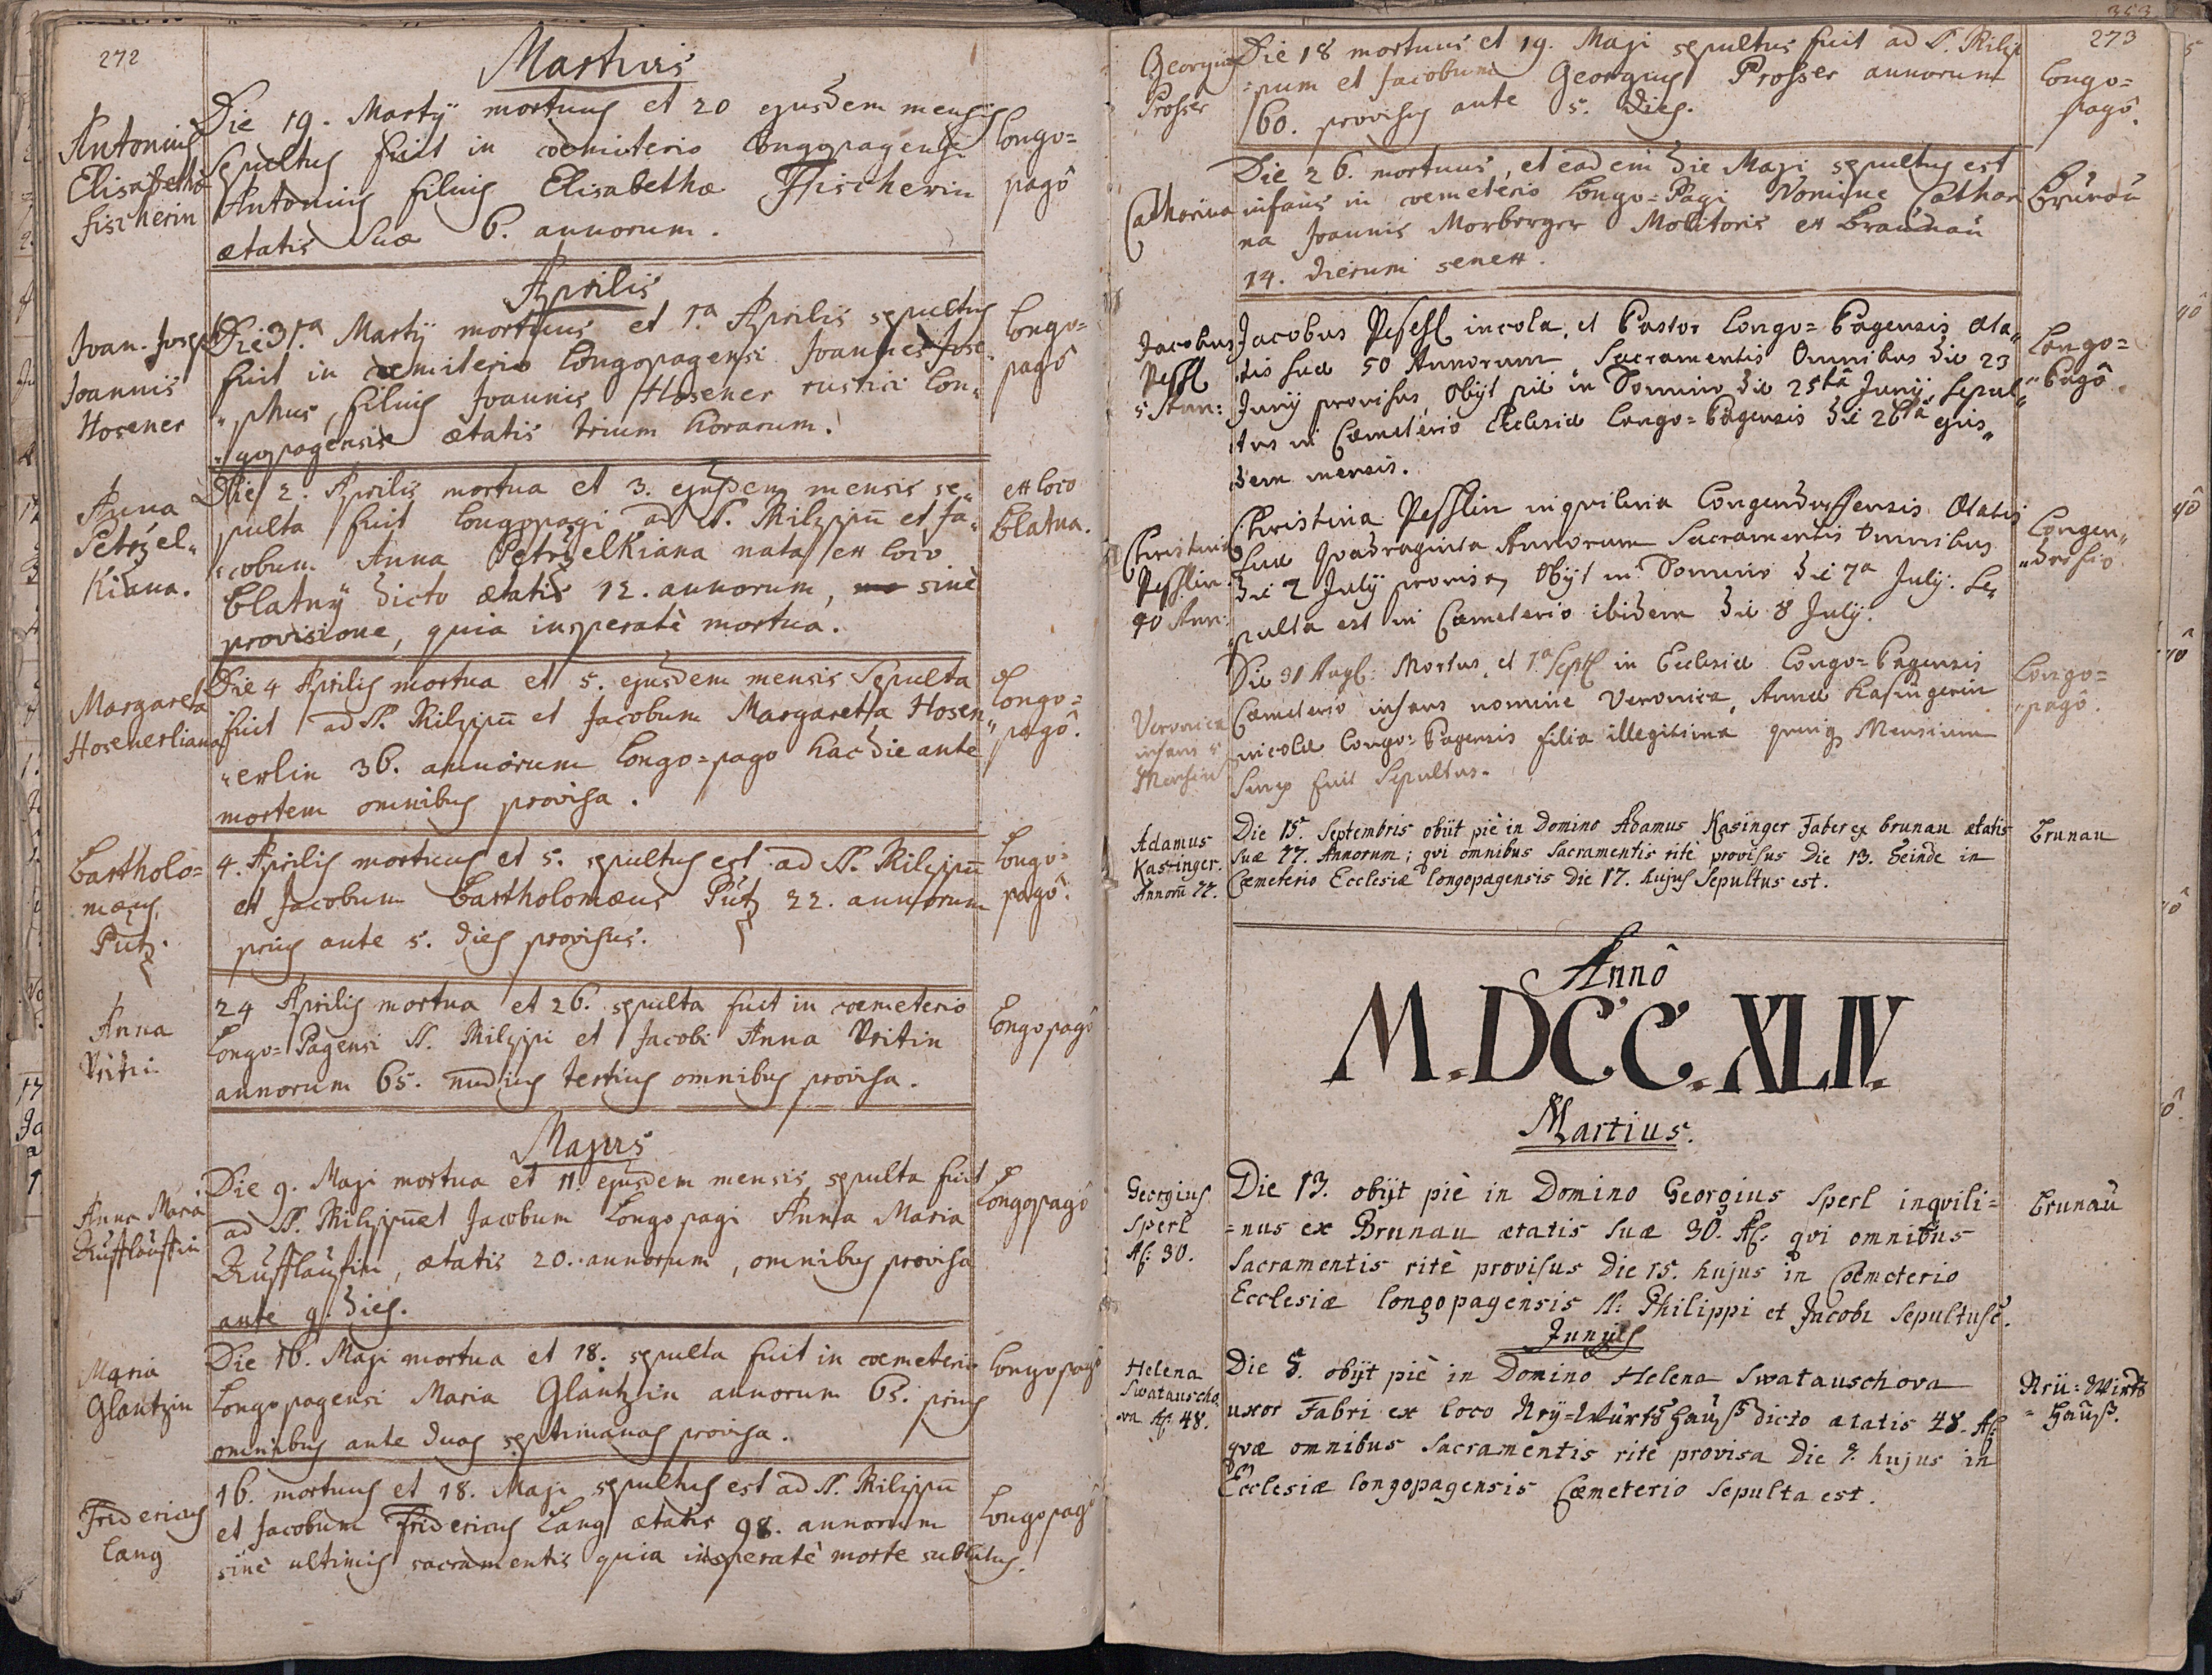 272
Martius
Antonius
Elisabethæ
Fischerin
Die 19. Martÿ mortuus et 20 ejusdem mensis
sepultus fuit in coemiterio Longopagensi
Antonius filius Elisabethæ Fischerin
ætatis suæ 6. annorum.
Longo=
pagô
Aprilis
Joan. Joseph
Joannis
Hosener
Die 31.a Martÿ mortuus et 1.a Aprilis sepultus
fuit in coemiterio Longopagensi Joannes Jose
"phus, filius Joannis Hosener rustici Lon"
"gopagensis ætatis trium horarum.
Longo=
pagô
Anna
Petrzel"
Kiana.
Die 2. Aprilis mortua et 3. ejusdem mensis se"
pulta fuit Longopagi ad SS. Philippū et Ja"
"cobum Anna PetrželKiana nata ex loco
Blatnÿ dicto ætatis 12. annorum, sinè
provisione, quia insperatè mortua.
ex loco
Blatna.
Margareta
Hosenerliana
Die 4 Aprilis mortua et 5. ejusdem mensis Sepulta
fuit ad SS. Philippū et Jacobum Margaretha Hosen"
"erlin 36. annorum Longo=pago hac die ante
mortem omnibus provisa.
Longo=
pagô.
Bartholo=
mæus
Pütz.
4. Aprilis mortuus et 5. sepultus est ad SS. Philippū
et Jacobum Bartholomæus Pütz 22. annorum
prius ante 5. dies provisus.
Longo=
pagô.
Anna
Vritin
24 Aprilis mortua et 26. sepulta fuit in coemeterio
Longo=Pagensi SS. Philippi et Jacobi Anna Vritin
annorum 65. nudius tertius omnibus provisa.
Longopagô
Majus
Anna Maria
Die 9. Maji mortua et 11. ejusdem mensis sepulta fuit
ad SS. Philippū et Jacobum Longopagi Anna Maria
ætatis 20. annorum, omnibus provisa
ante 9. dies.
Longopagô
Maria
Glantzin
Die 16. Maji mortua et 18. sepulta fuit in coemeterio
Longopagensi Maria Glantzin annorum 65. prius
omnibus ante duas septimanas provisa.
Longopagô
Fridericus
Lang
16. mortuus et 18. Maji sepultus est ad SS. Philippū
et Jacobum Fridericus Lang ætatis 98. annorum
sinè ultimis sacramentis quia insperatè morte sublatus.
Longopagô
273
Georgius
Prosser
Die 18 mortuus et 19. Maji sepultus fuit ad SS. Philip
=pum et Jacobum Georgius Prosser annorum
60. provisus ante 5. dies.
Longo=
pagô.
Catharina
Die 26. mortuus, et eadem die Maji sepultus est
infans in coemeterio Longo=Pagi Nomine Cathari
na Joannis Morberger Molitoris ex Braunau
14. dierum senex.
Brunau
Jacobus
Peschl
5 Ann:
Jacobus Peschl incola, et Pastor Longo=Pagensis Æta"
tis suæ 50 Annorum Sacramentis Omnibus die 23
Junÿ provisus, Obÿt piè in Domino die 25tâ Junÿ, Sepul"
tus in Cæmeterio Ecclesiæ Longo=Pagensis die 26ta ejus"
dem mensis.
Longo=
"Pagô.
Christina
Pesslin
40 Ann.
Christina Pesslin inquilina Longendorffensis Ætatis
suæ Quadraginta Annorum Sacramentis Omnibus
die 2 Julÿ provisa, Obÿt in Domino die 7a Julÿ. Se"
pulta est in Cæmeterio ibidem die 8 Julÿ.
Longen"
Veronica
infans 5
Mensium
Die 31 Aug: Mortus, et 1a Sept in Ecclesiæ Longo=Pagensis
Cæmeterio infans nomine Veronica, Annæ Kasingerin
incolæ Longo=Pagensis filia illegitima quinq Mensium
fuit Sepultus.
Longo=
"pagô.
Adamus
Kasinger.
Annorū 77.
Die 15. Septembris obiit piè in Domino Adamus Kasinger Faber ex brunau ætatis
suæ 77. Annorum; qvi omnibus Sacramentis ritè provisus Die 13. Deinde in
Cœmeterio Ecclesiæ longopagensis Die 17. hujus Sepultus est.
brunau
Annô
M.DCC.XLIV.
Martius.
Georgius
Sperl
A: 30.
Die 13. obiit piè in Domino Georgius Sperl inqvili=
=nus ex Brunau ætatis suæ 30. A: qvi omnibus
Sacramentis ritè provisus Die 15. hujus in Cœmeterio
Ecclesiæ longopagensis SS: Philippi et Jacobi Sepultus ē.
brunau
Junÿ
Helena
Swatauscho.
va A: 48.
Die 5. obÿt piè in Domino Helena Swatauschova
uxor Fabri ex loco Nrÿ=Würts Hauß dicto ætatis 48. A:
qvæ omnibus Sacramentis ritè provisa Die 7. hujus in
Ecclesiæ longopagensis Cœmeterio Sepulta est.
Nrü=Wirts
=Hauß.